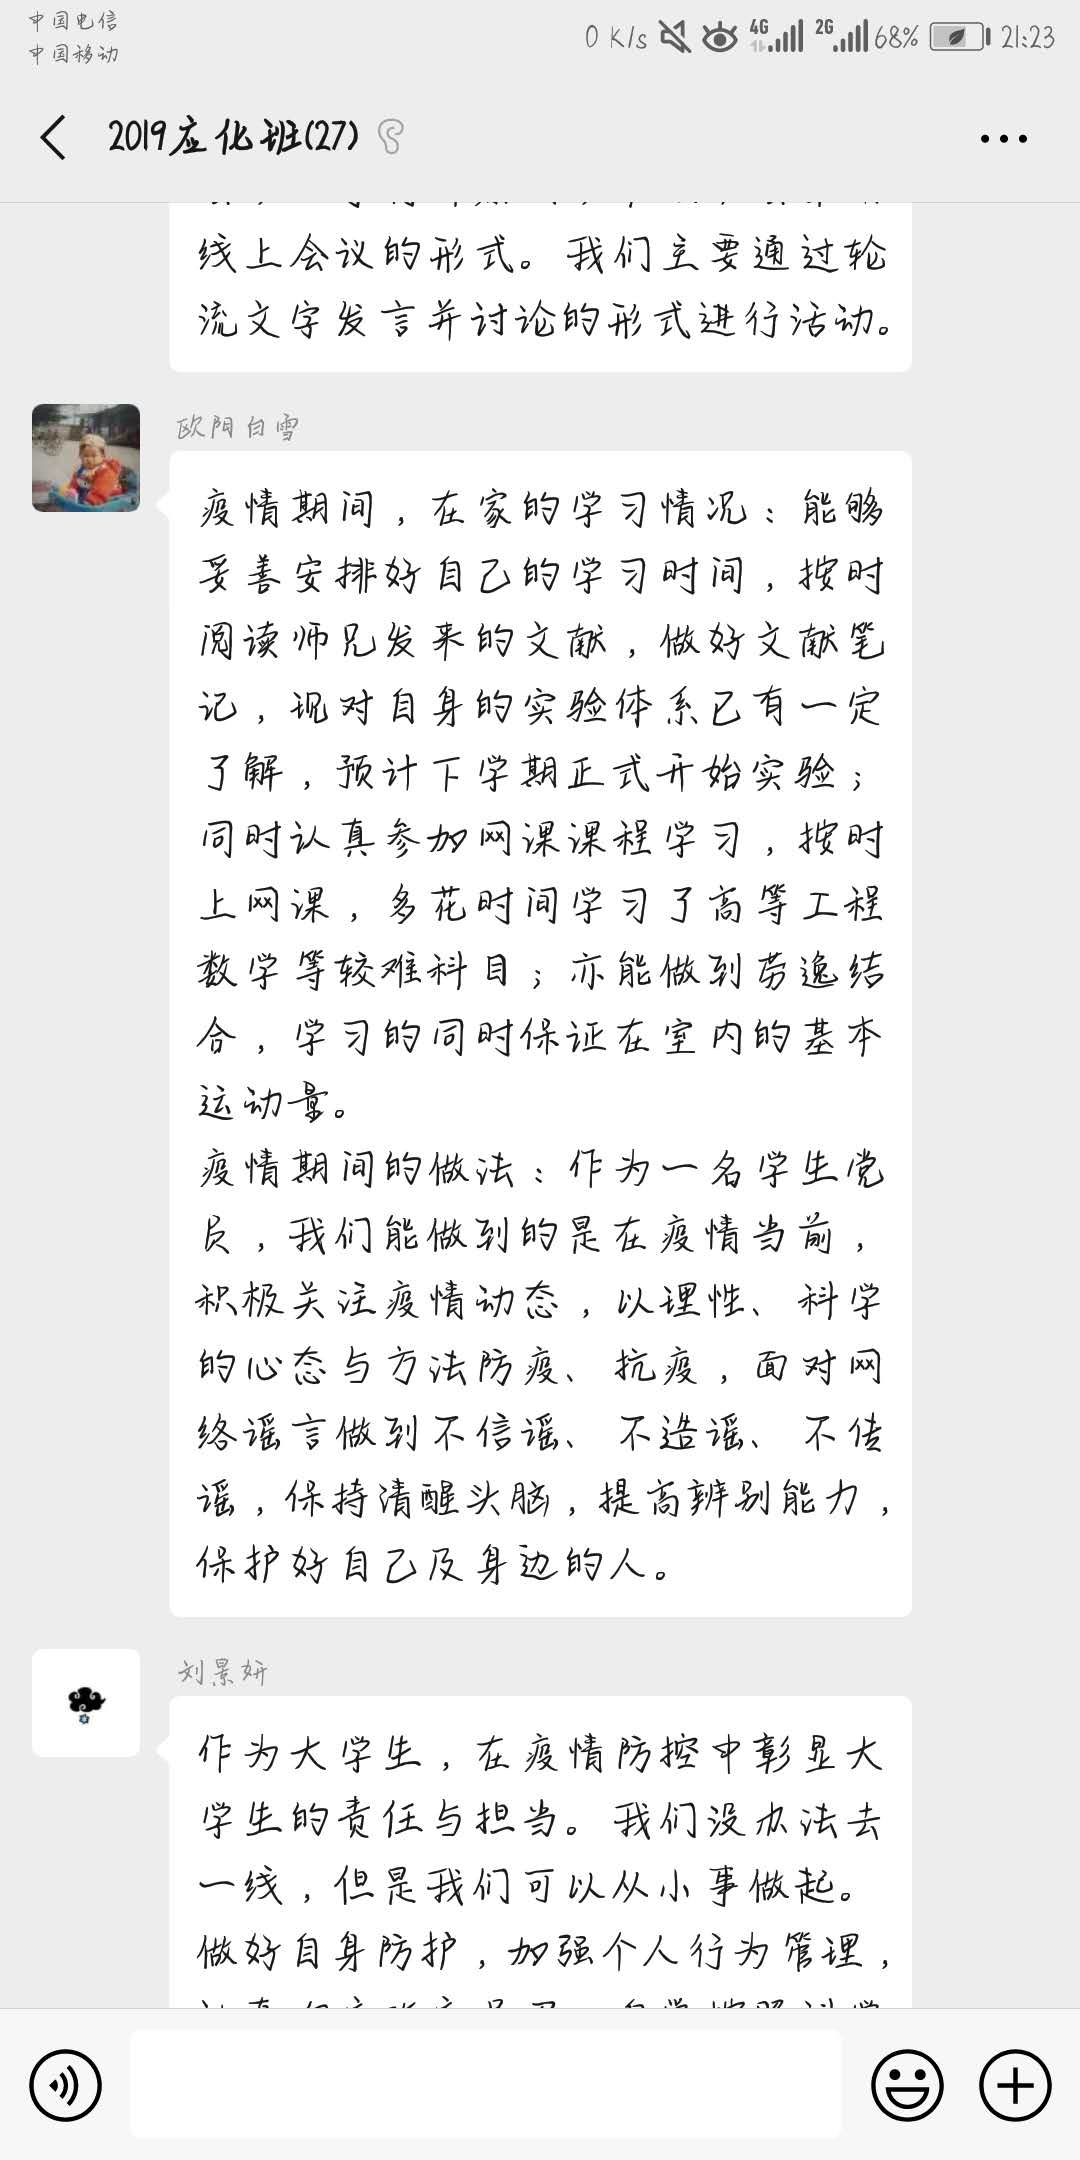 中国电信
中国移动
0 K/s 4G 2G 68% 21:23
2019应化班(27)
线上会议的形式。我们主要通过轮
流文字发言并讨论的形式进行活动。
欧阳白雪
疫情期间，在家的学习情况：能够
妥善安排好自己的学习时间，按时
阅读师兄发来的文献，做好文献笔
记，现对自身的实验体系已有一定
了解，预计下学期正式开始实验；
同时认真参加网课课程学习，按时
上网课，多花时间学习了高等工程
数学等较难科目；亦能做到劳逸结
合，学习的同时保证在室内的基本
运动量。
疫情期间的做法：作为一名学生党
员，我们能做到的是在疫情当前，
积极关注疫情动态，以理性、科学
的心态与方法防疫、抗疫，面对网
络谣言做到不信谣、不造谣、不传
谣，保持清醒头脑，提高辨别能力，
保护好自己及身边的人。
刘景妍
作为大学生，在疫情防控中彰显大
学生的责任与担当。我们没办法去
一线，但是我们可以从小事做起。
做好自身防护，加强个人行为管理，